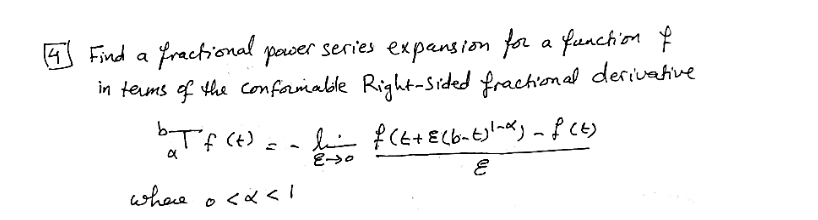 [4] Find a fractional power series expansion for a function f
in terms of the conformable Right-Sided fractional derivative
ᵇ_αT f(t) = - lim_{ε→0} \frac{f(t+ε(b-t)^{1-α}) - f(t)}{ε}
where 0 < α < 1